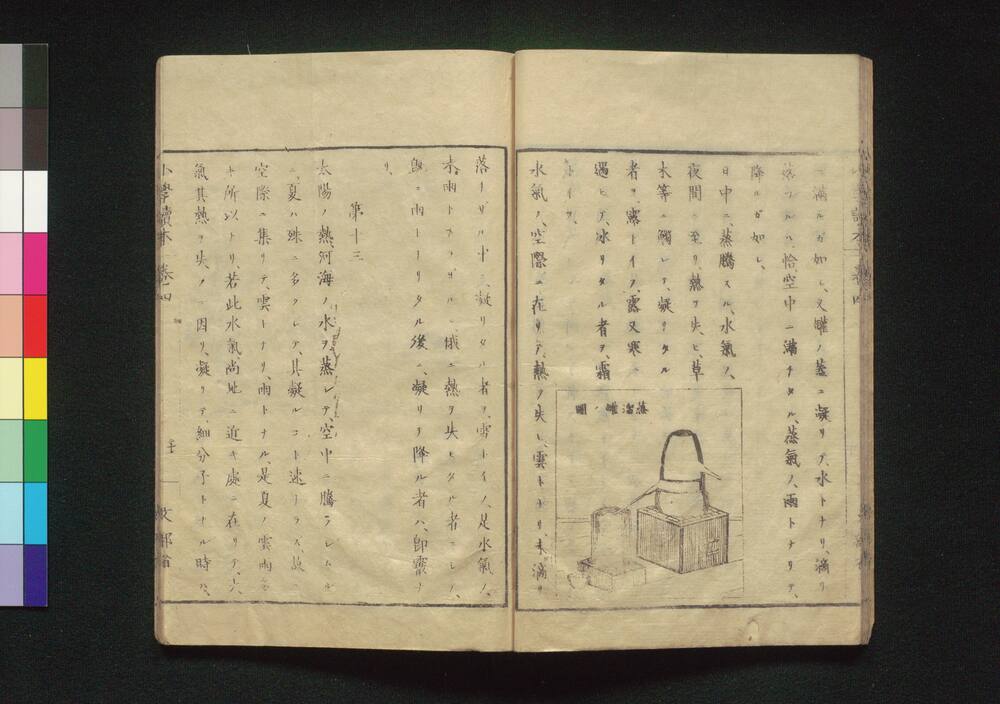 ニ滿ルガ如シ、又罐ノ蓋ニ凝リテ、水トナリ、滴リ
落ツルハ、恰空中ニ滿チタル、蒸氣ノ、雨トナリテ、
降ルガ如シ、
日中ニ、蒸騰スル、水氣ノ、
夜間ニ至リ、熱ヲ失ヒ、草
木等ニ觸レテ、凝リタル
者ヲ、露トイフ、露又寒ニ
遇ヒテ、氷リタル者ヲ、霜
トイフ、
蒸溜罐ノ圖
水氣ノ、空際ニ在リテ、熱ヲ失ヒ、雲トナリ、未滴リ
落チザル中ニ、凝リタル者ヲ、雪トイフ、是水氣ノ、
未雨トナラザルニ、俄ニ熱ヲ失ヒタル者ニシテ、
既ニ雨トナリタル後ニ、凝リテ降ル者ハ、即霰ナ
リ、
第十三
太陽ノ熱、河海ノ水ヲ蒸シテ、空中ニ騰ラシムル
ニ、夏ハ殊ニ多クシテ、其凝ルコト速ナラズ、故ニ
空際ニ集リテ、雲トナリ、雨トナル、是夏ノ雲雨多
キ所以ナリ、若此水氣尚地ニ近キ處ニ在リテ、大
氣其熱ヲ失フニ因リ、凝リテ、細分子トナル時ハ、
小學讀本 卷四
文部省